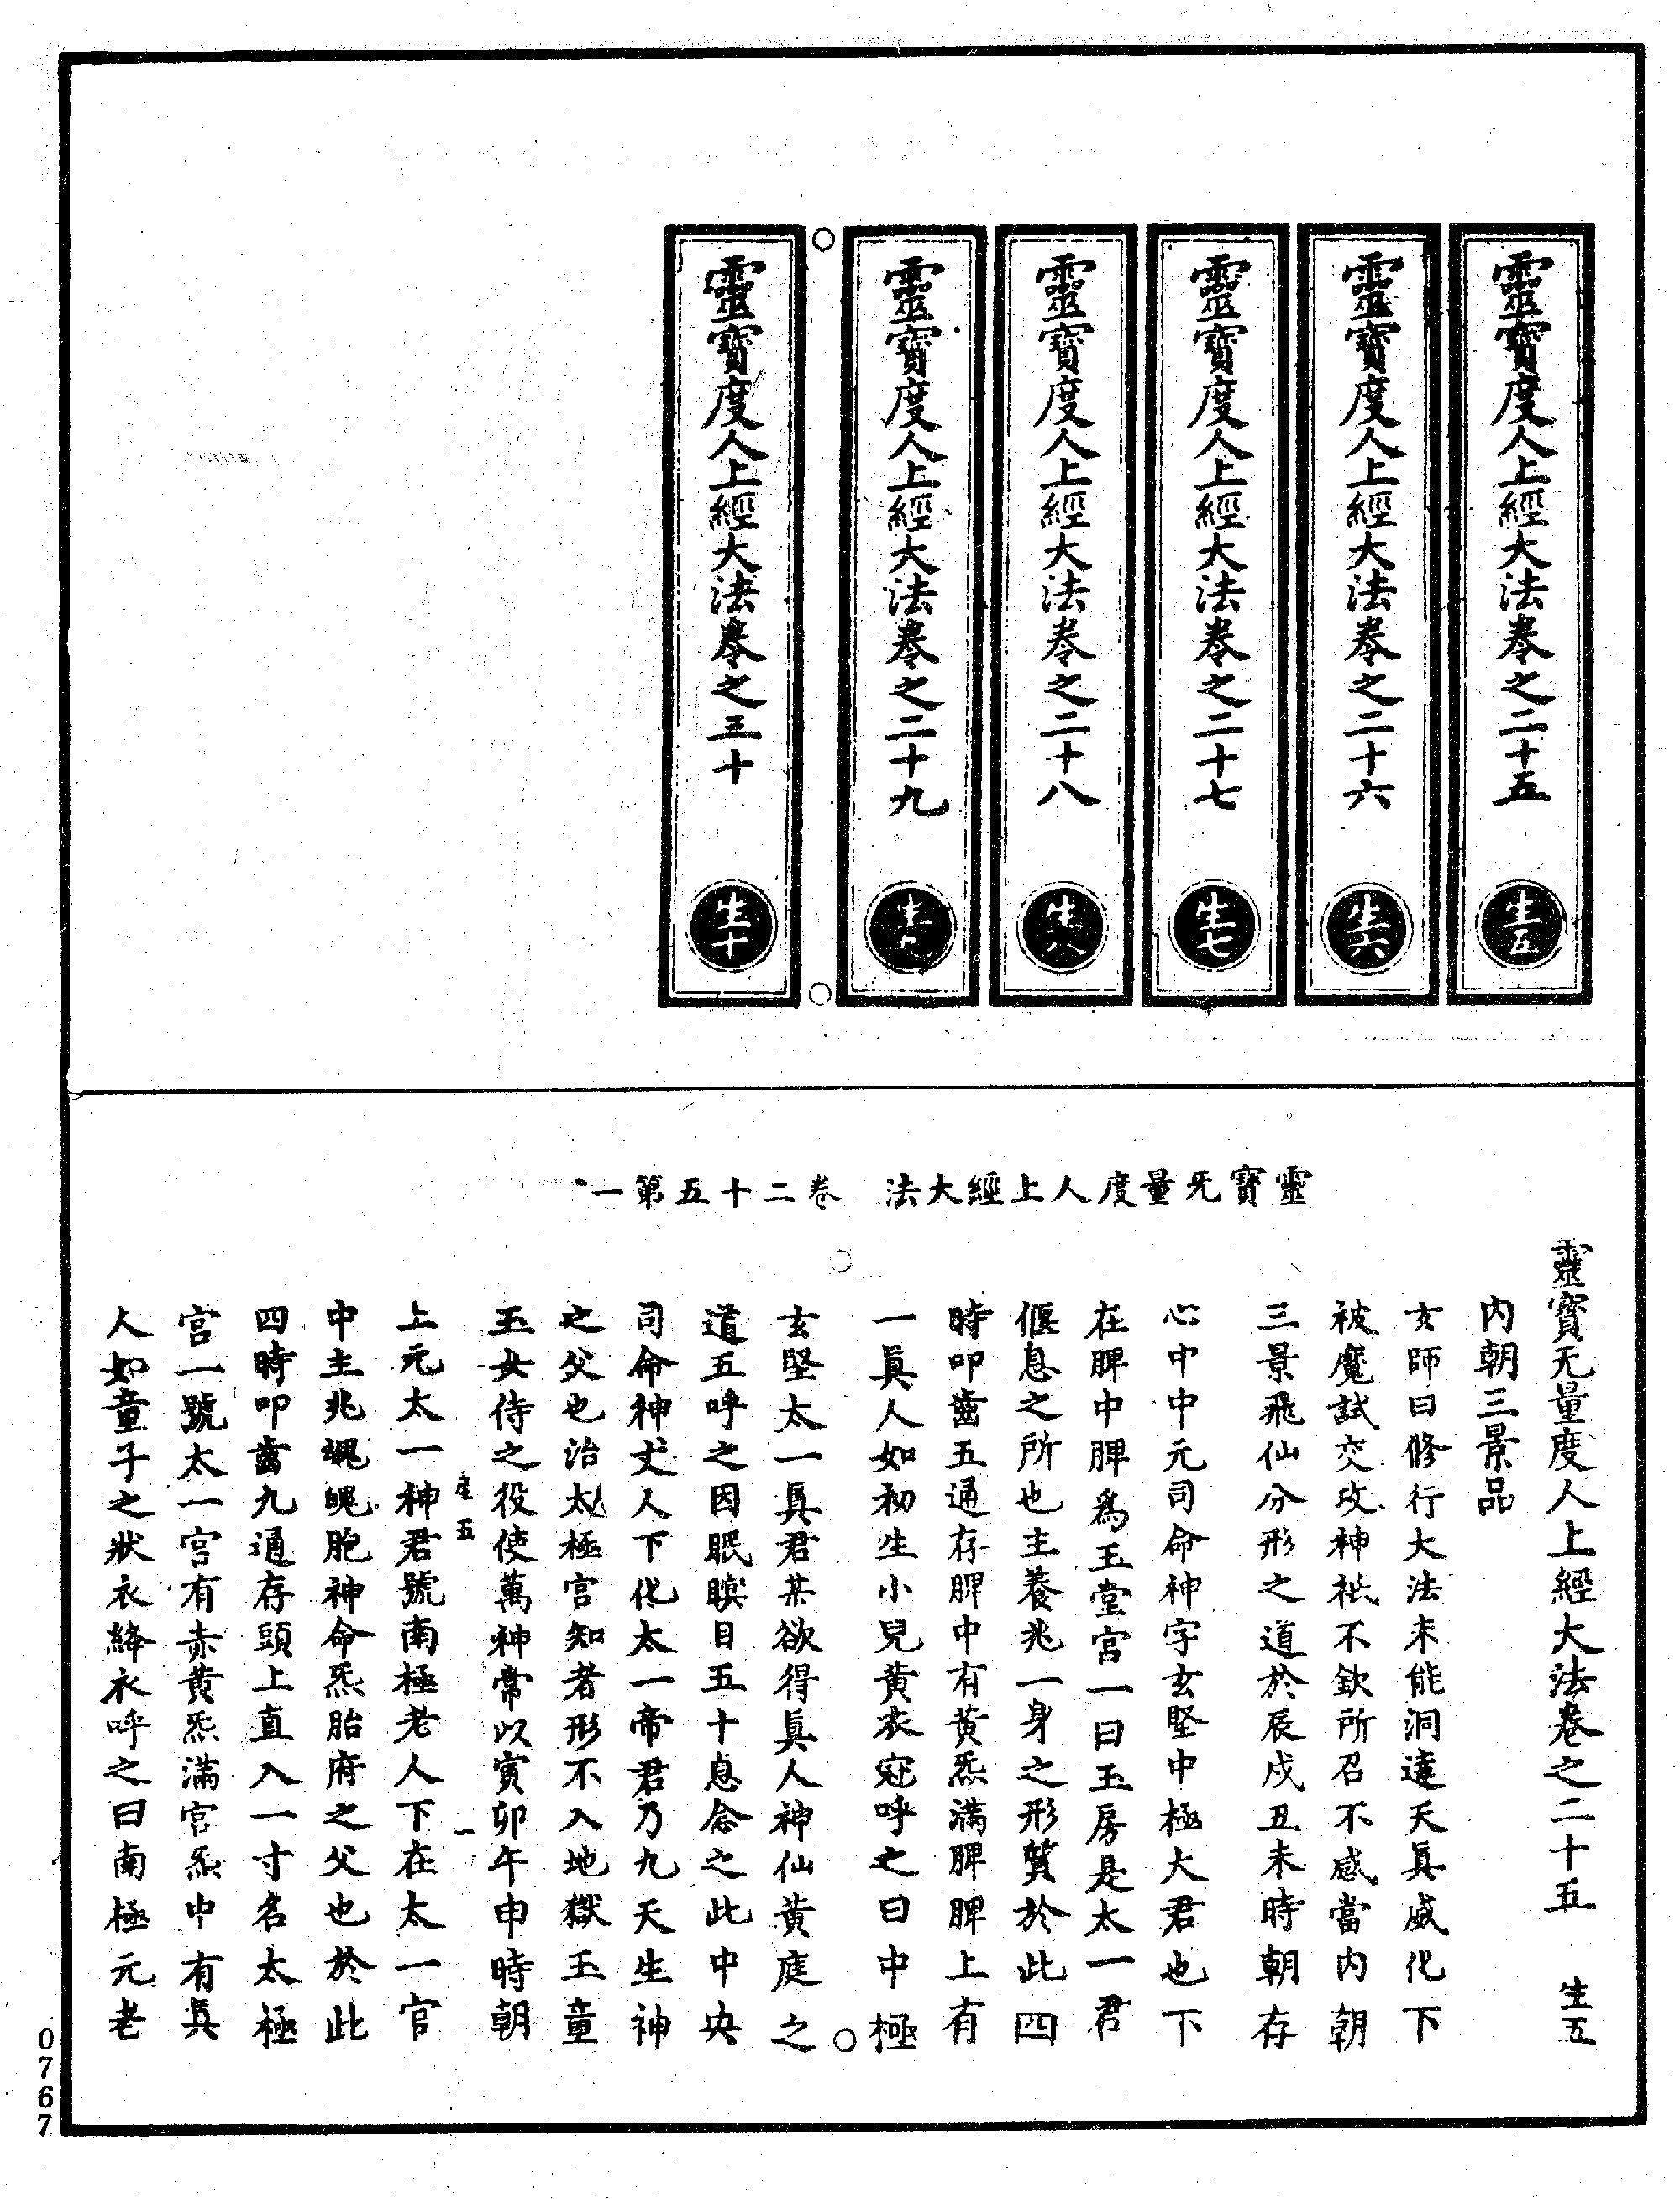 靈寶度人上經大法卷之二十五
生五
靈寶度人上經大法卷之二十六
生六
靈寶度人上經大法卷之二十七
生七
靈寶度人上經大法卷之二十八
生八
靈寶度人上經大法卷之二十九
生九
靈寶度人上經大法卷之三十
生十
靈寶无量度人上經大法 卷二十五第一
靈寶无量度人上經大法卷之二十五 生五
内朝三景品
玄師曰修行大法未能洞達天真威化下
被魔試交攻神祇不欽所召不感當内朝
三景飛仙分形之道於辰戌丑未時朝存
心中中元司命神字玄堅中極大君也下
在脾中脾爲玉堂宮一曰玉房是太一君
偃息之所也主養兆一身之形質於此四
時叩齒五通存脾中有黄炁满脾脾上有
一眞人如初生小兒黄衣冠呼之曰中極
玄堅太一眞君某欲得眞人神仙黄庭之
道五呼之因眠瞑目五十息念之此中央
司命神丈人下化太一帝君乃九天生神
之父也治太極宮知者形不入地獄玉童
玉女侍之役使萬神常以寅卯午申時朝
生五 一
上元太一神君號南極老人下在太一宮
中主兆魂魄胞神命炁胎府之父也於此
四時叩齒九通存頭上直入一寸名太極
宮一號太一宮有赤黄炁满宮炁中有眞
人如童子之狀衣絳衣呼之曰南極元老
0767